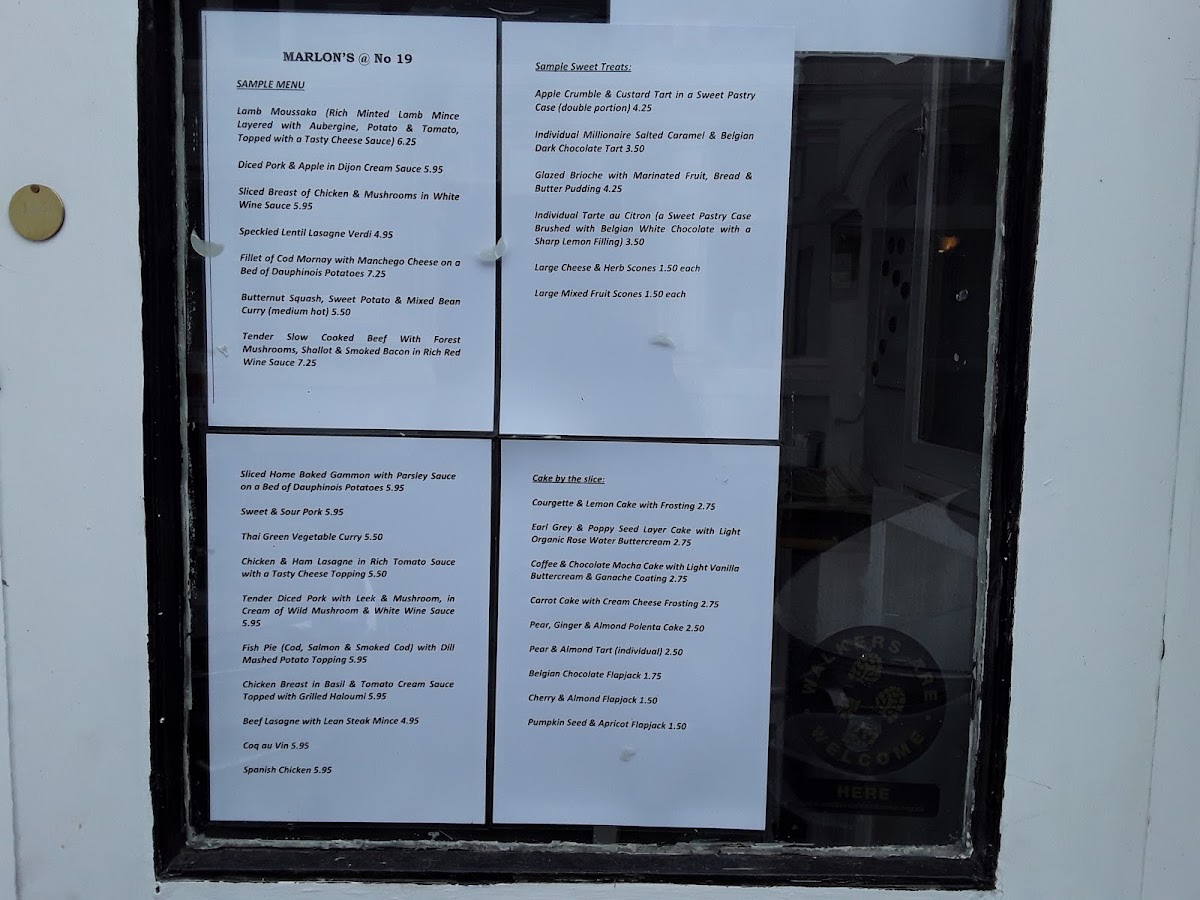 MARLON'S @ No 19
SAMPLE MENU
Lamb Moussaka (Rich Minted Lamb Mince
Layered with Aubergine, Potato & Tomato,
Topped with a Tasty Cheese Sauce) 6.25
Diced Pork & Apple in Dijon Cream Sauce 5.95
Sliced Breast of Chicken & Mushrooms in White
Wine Sauce 5.95
Speckled Lentil Lasagne Verdi 4.95
Fillet of Cod Mornay with Manchego Cheese on a
Bed of Dauphinois Potatoes 7.25
Butternut Squash, Sweet Potato & Mixed Bean
Curry (medium hot) 5.50
Tender Slow Cooked Beef With Forest
Mushrooms, Shallot & Smoked Bacon in Rich Red
Wine Sauce 7.25
Sliced Home Baked Gammon with Parsley Sauce
on a Bed of Dauphinois Potatoes 5.95
Sweet & Sour Pork 5.95
Thai Green Vegetable Curry 5.50
Chicken & Ham Lasagne in Rich Tomato Sauce
with a Tasty Cheese Topping 5.50
Tender Diced Pork with Leek & Mushroom, in
Cream of Wild Mushroom & White Wine Sauce
5.95
Fish Pie (Cod, Salmon & Smoked Cod) with Dill
Mashed Potato Topping 5.95
Chicken Breast in Basil & Tomato Cream Sauce
Topped with Grilled Haloumi 5.95
Beef Lasagne with Lean Steak Mince 4.95
Coq au Vin 5.95
Spanish Chicken 5.95
Sample Sweet Treats:
Apple Crumble & Custard Tart in a Sweet Pastry
Case (double portion) 4.25
Individual Millionaire Salted Caramel & Belgian
Dark Chocolate Tart 3.50
Glazed Brioche with Marinated Fruit, Bread &
Butter Pudding 4.25
Individual Tarte au Citron (a Sweet Pastry Case
Brushed with Belgian White Chocolate with a
Sharp Lemon Filling) 3.50
Large Cheese & Herb Scones 1.50 each
Large Mixed Fruit Scones 1.50 each
Cake by the slice:
Courgette & Lemon Cake with Frosting 2.75
Earl Grey & Poppy Seed Layer Cake with Light
Organic Rose Water Buttercream 2.75
Coffee & Chocolate Mocha Cake with Light Vanilla
Buttercream & Ganache Coating 2.75
Carrot Cake with Cream Cheese Frosting 2.75
Pear, Ginger & Almond Polenta Cake 2.50
Pear & Almond Tart (individual) 2.50
Belgian Chocolate Flapjack 1.75
Cherry & Almond Flapjack 1.50
Pumpkin Seed & Apricot Flapjack 1.50
WALKERS ARE
WELCOME
HERE